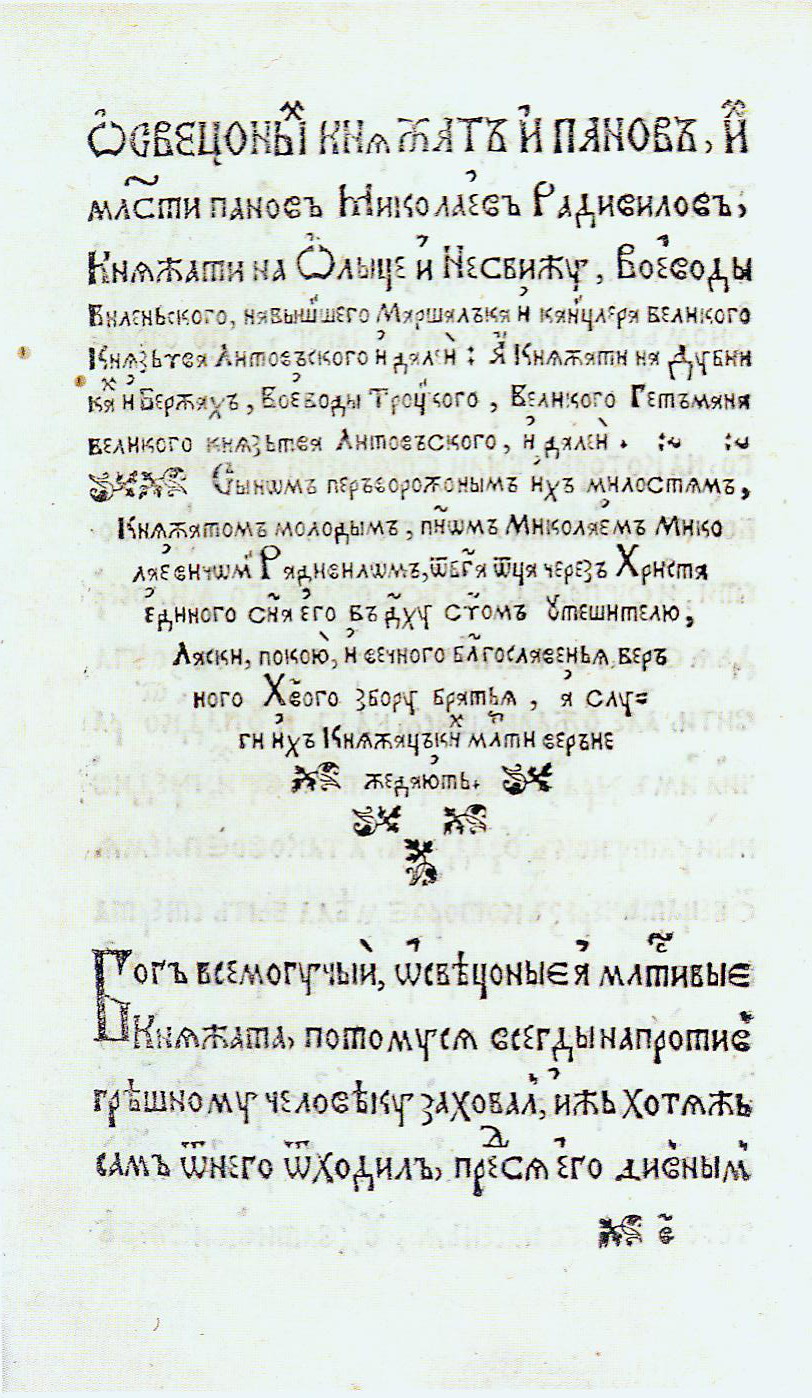 Ѡсвецоны́х кнѧжатъ и҆ пановъ, и҆х
мл҃сти пановъ Миколаевъ Радивиловъ,
Кнѧжати на Ѡлыце и҆ Несвижу, воеводы
виленьского, навышшего Маршалъка и҆ канцлера великого
Кнѧзьтва Литовъского и҆ далей : Я҆ Кнѧжати на Дубни
ках и҆ Бержахъ, Воеводы Троцкого, Великого Гетъмана
великого кнѧзьтва Литовъского, и҆ далей. :~ :~
Сыномъ перъворожонымъ и҆хъ милостѧмъ,
Кнѧжатомъ молодымъ, пномъ Миколаемъ Мико
лаевичомъ Радивиломъ, ѿ бг҃а ѿца черезъ Христа
единого сн҃а его въ дх҃у ст҃омъ Утешителю,
Ласки, покою, и҆ вечного бл҃гославенья верь
ного Хв҃ого збору братьѧ, я҆ слу=
ги и҆хъ Кнѧжацъких мл҃ти веръне
жедають.
Богъ всемогучый, ѡсвѣцоные я҆ мл҃стивые
Кнѧжата, потому сѧ всегды напротив
грѣшному человѣку заховал, ижь хотѧжь
самъ ѿ него ѿходилъ, предсѧ его дивным
в҃